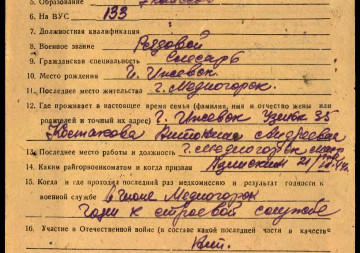 5. Образование
6. На ВУС 133
7. Должностная квалификация
8. Военное звание Рядовой
9. Гражданская специальность Слесарь
10. Место рождения г. Ижевск.
11. Последнее место жительства г. Медногорск.
12. Где проживает в настоящее время семья (фамилия, имя и отчество жены или
родителей и точный их адрес) г. Ижевск 35
13. Последнее место работы и должность г. Медногорск
14. Каким райгорвоенкоматом и когда призван
15. Когда и где проходил последний раз медкомиссию и результат годности к
военной службе в Июне Медногорск
Годен к строевой службе
16. Участие в Отечественной войне (в составе какой последней части и в качестве
Нет.